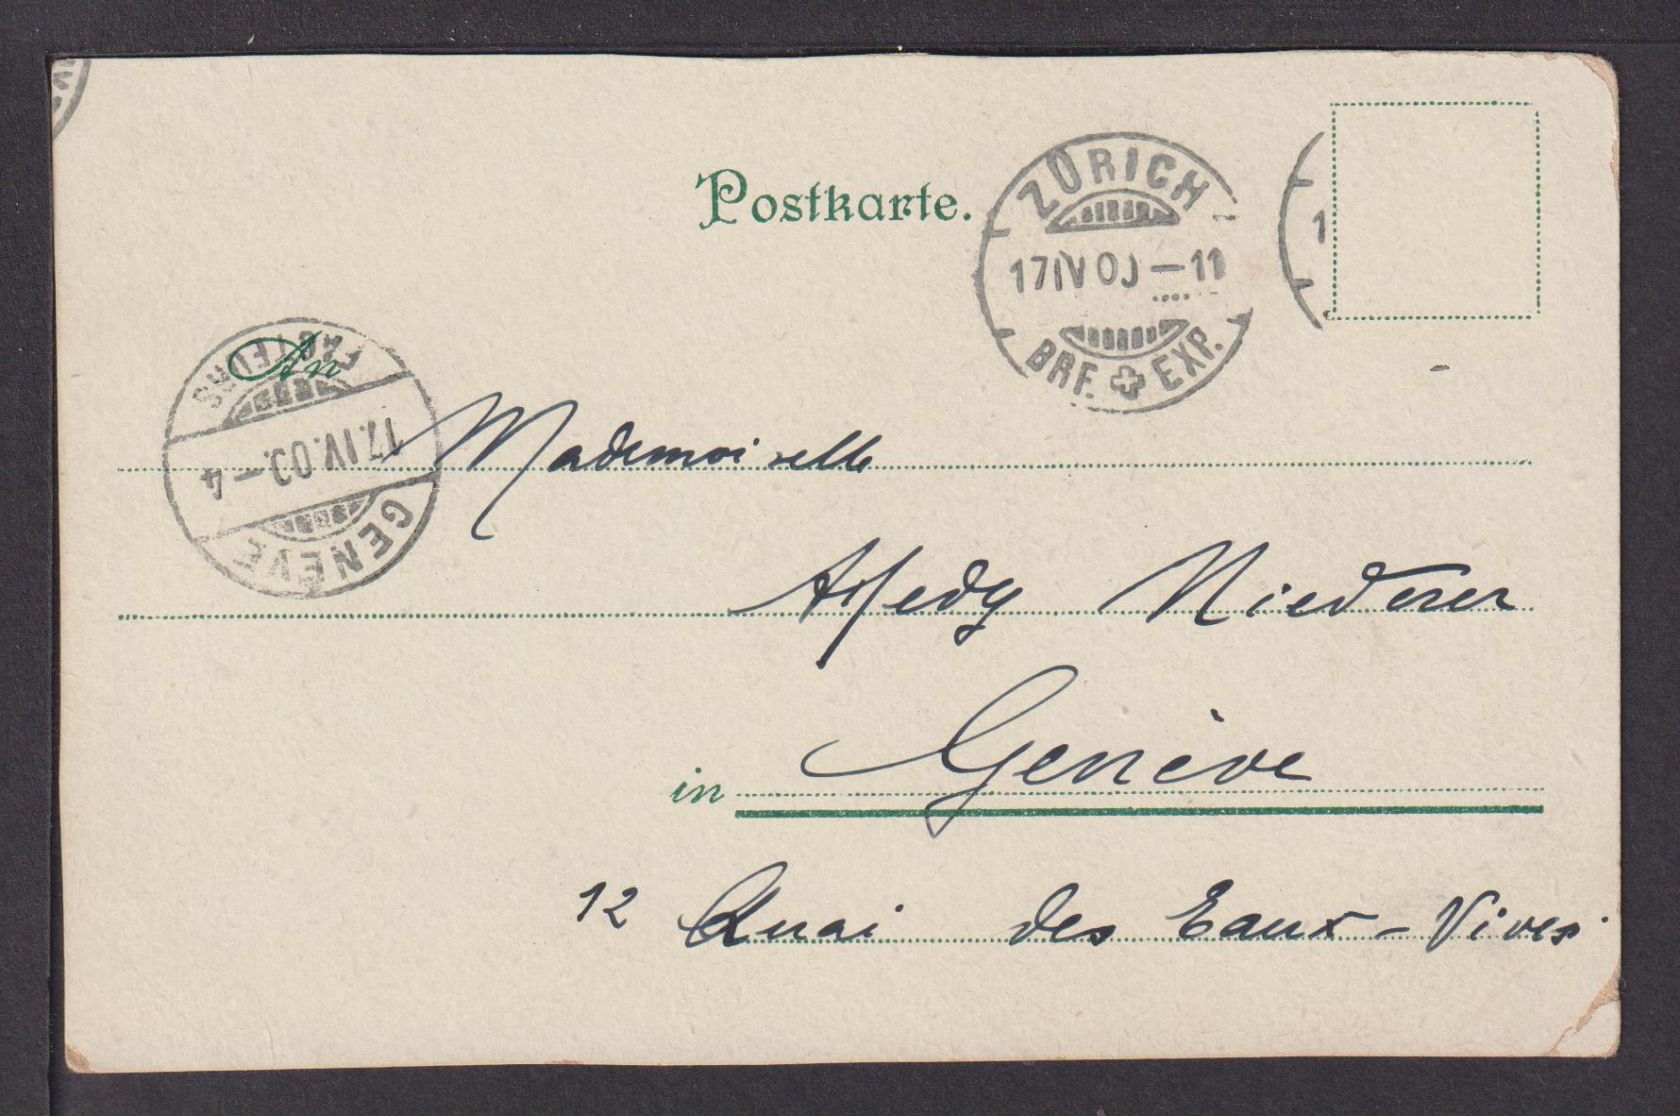 Postkarte.
ZÜRICH
17 IV 00 – 11
BRF. EXP.
1
An
FACTEURS
17. IV. 00. – 4
GENÈVE
Mademoiselle
Hedy Niederer
in Genève
12 Quai des Eaux-Vives